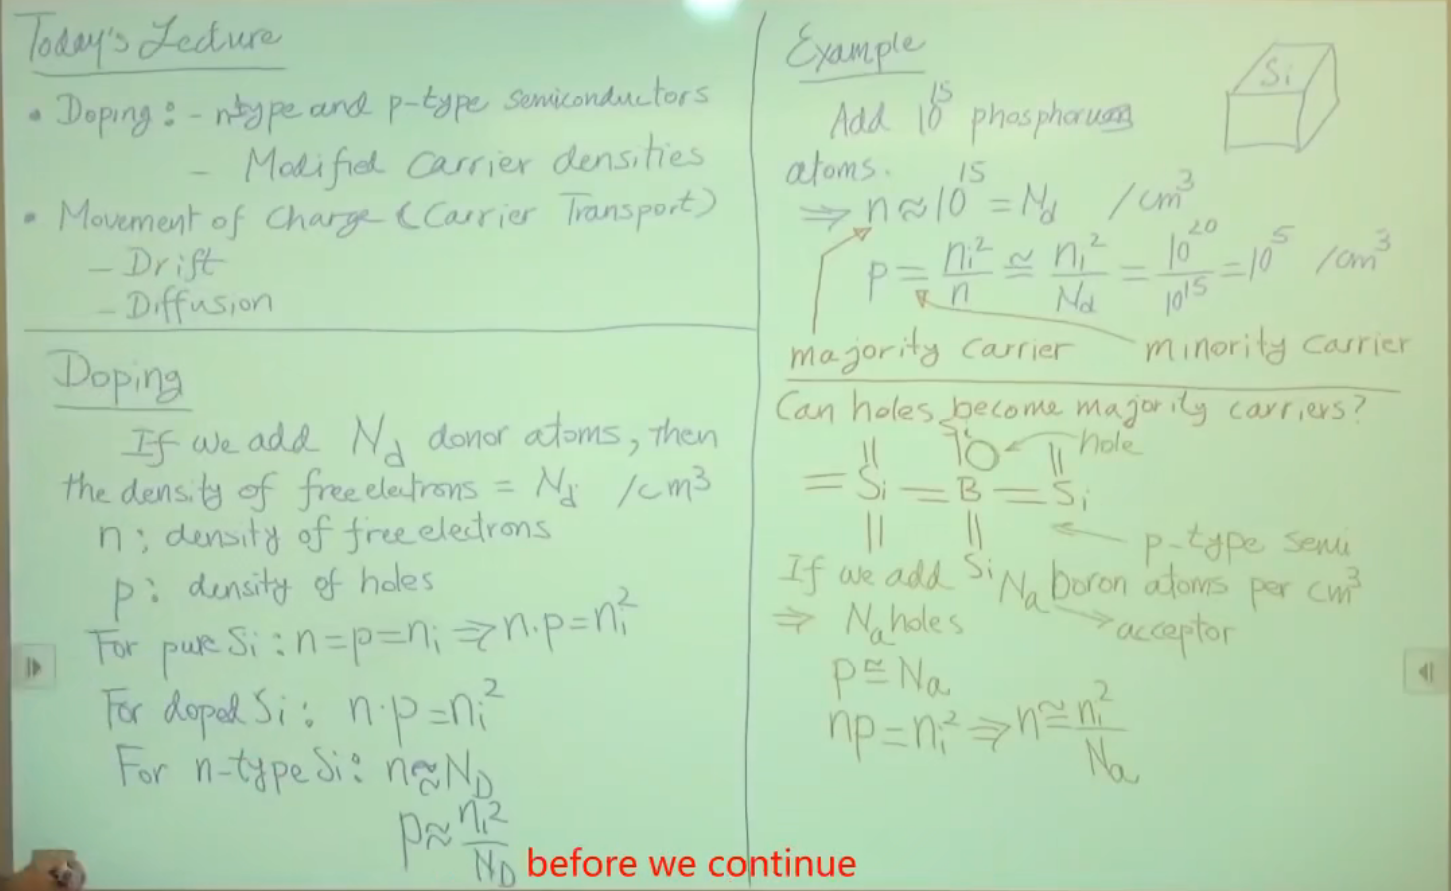 Today's Lecture
• Doping: - n-type and p-type semiconductors
- Modified carrier densities
• Movement of Charge (Carrier Transport)
- Drift
- Diffusion
Doping
If we add N_d donor atoms, then
the density of free electrons = N_d /cm³
n: density of free electrons
p: density of holes
For pure Si: n=p=n_i ⇒ n·p=n_i²
For doped Si: n·p=n_i²
For n-type Si: n≈N_D
p≈n_i²/N_D
Example
Si
Add 10¹⁵ phosphorus
atoms.
⇒ n≈10¹⁵=N_d /cm³
p=n_i²/n≅n_i²/N_d=10²⁰/10¹⁵=10⁵ /cm³
majority carrier minority carrier
Can holes become majority carriers?
hole
=Si=B=Si
p-type semi
Si
If we add N_a boron atoms per cm³
⇒ N_a holes acceptor
p≅N_a
np=n_i²⇒n≅n_i²/N_a
before we continue